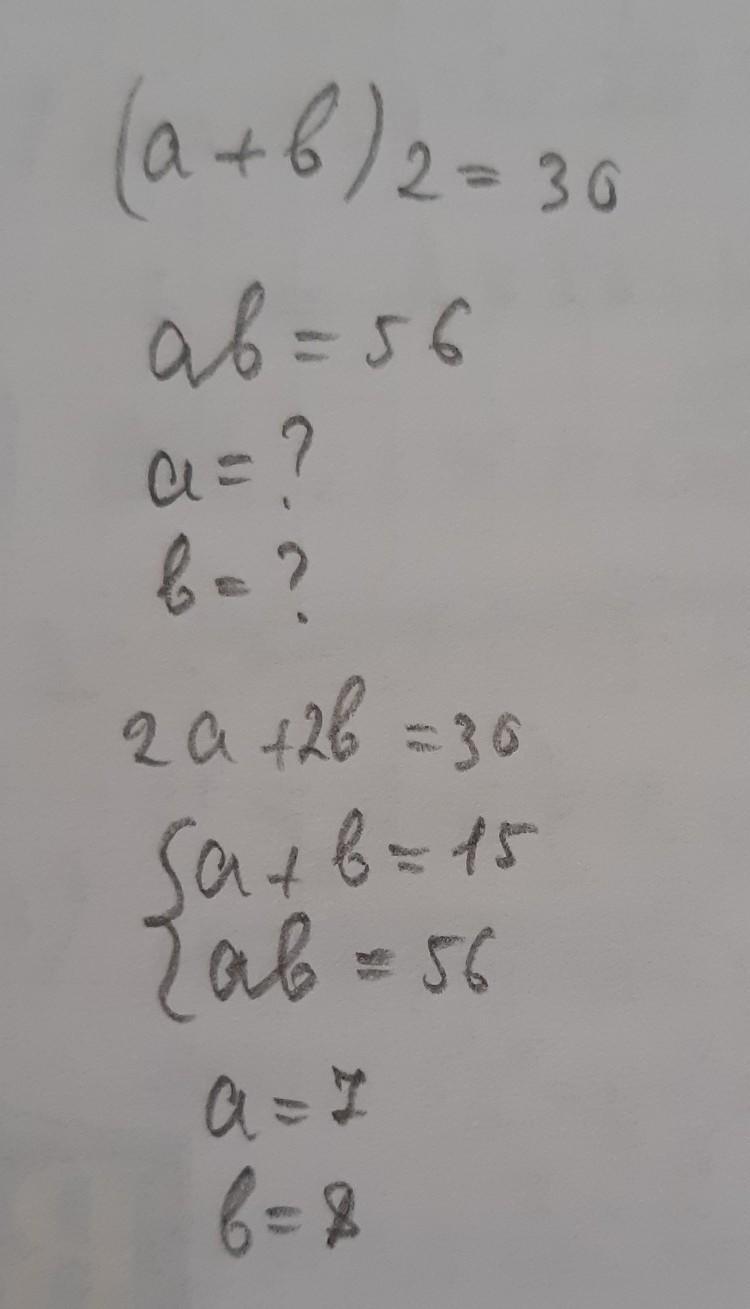 (a+b)2=30
ab=56
a=?
b=?
2a+2b=30
{a+b=15
{ab=56
a=7
b=8